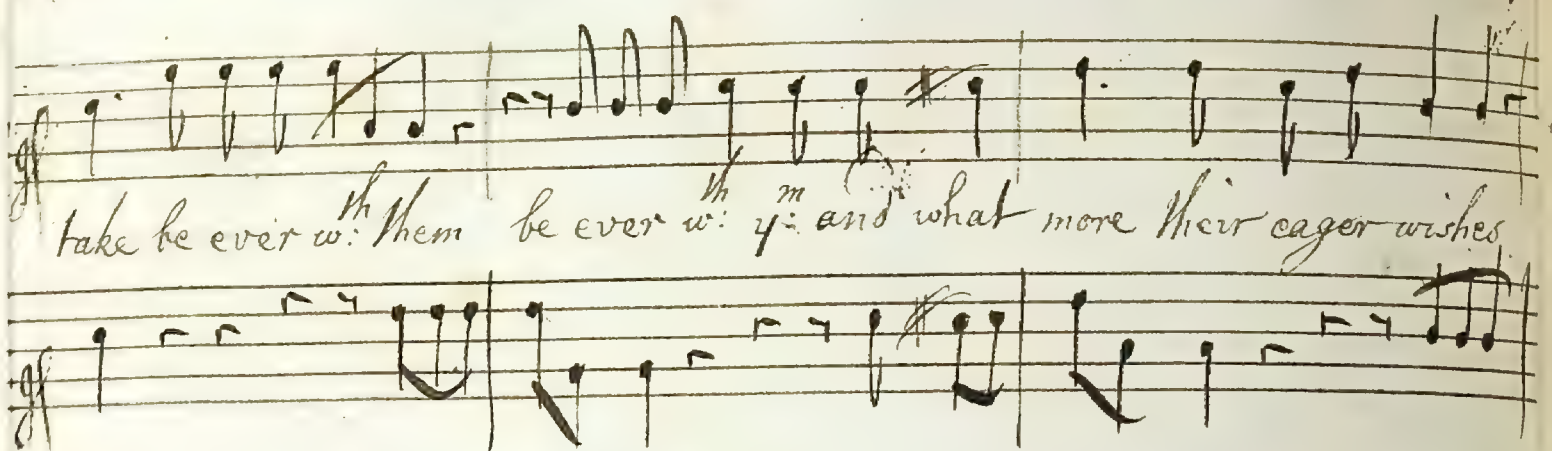 take be ever w:th them be ever w:th y:m and what more their eager wishes